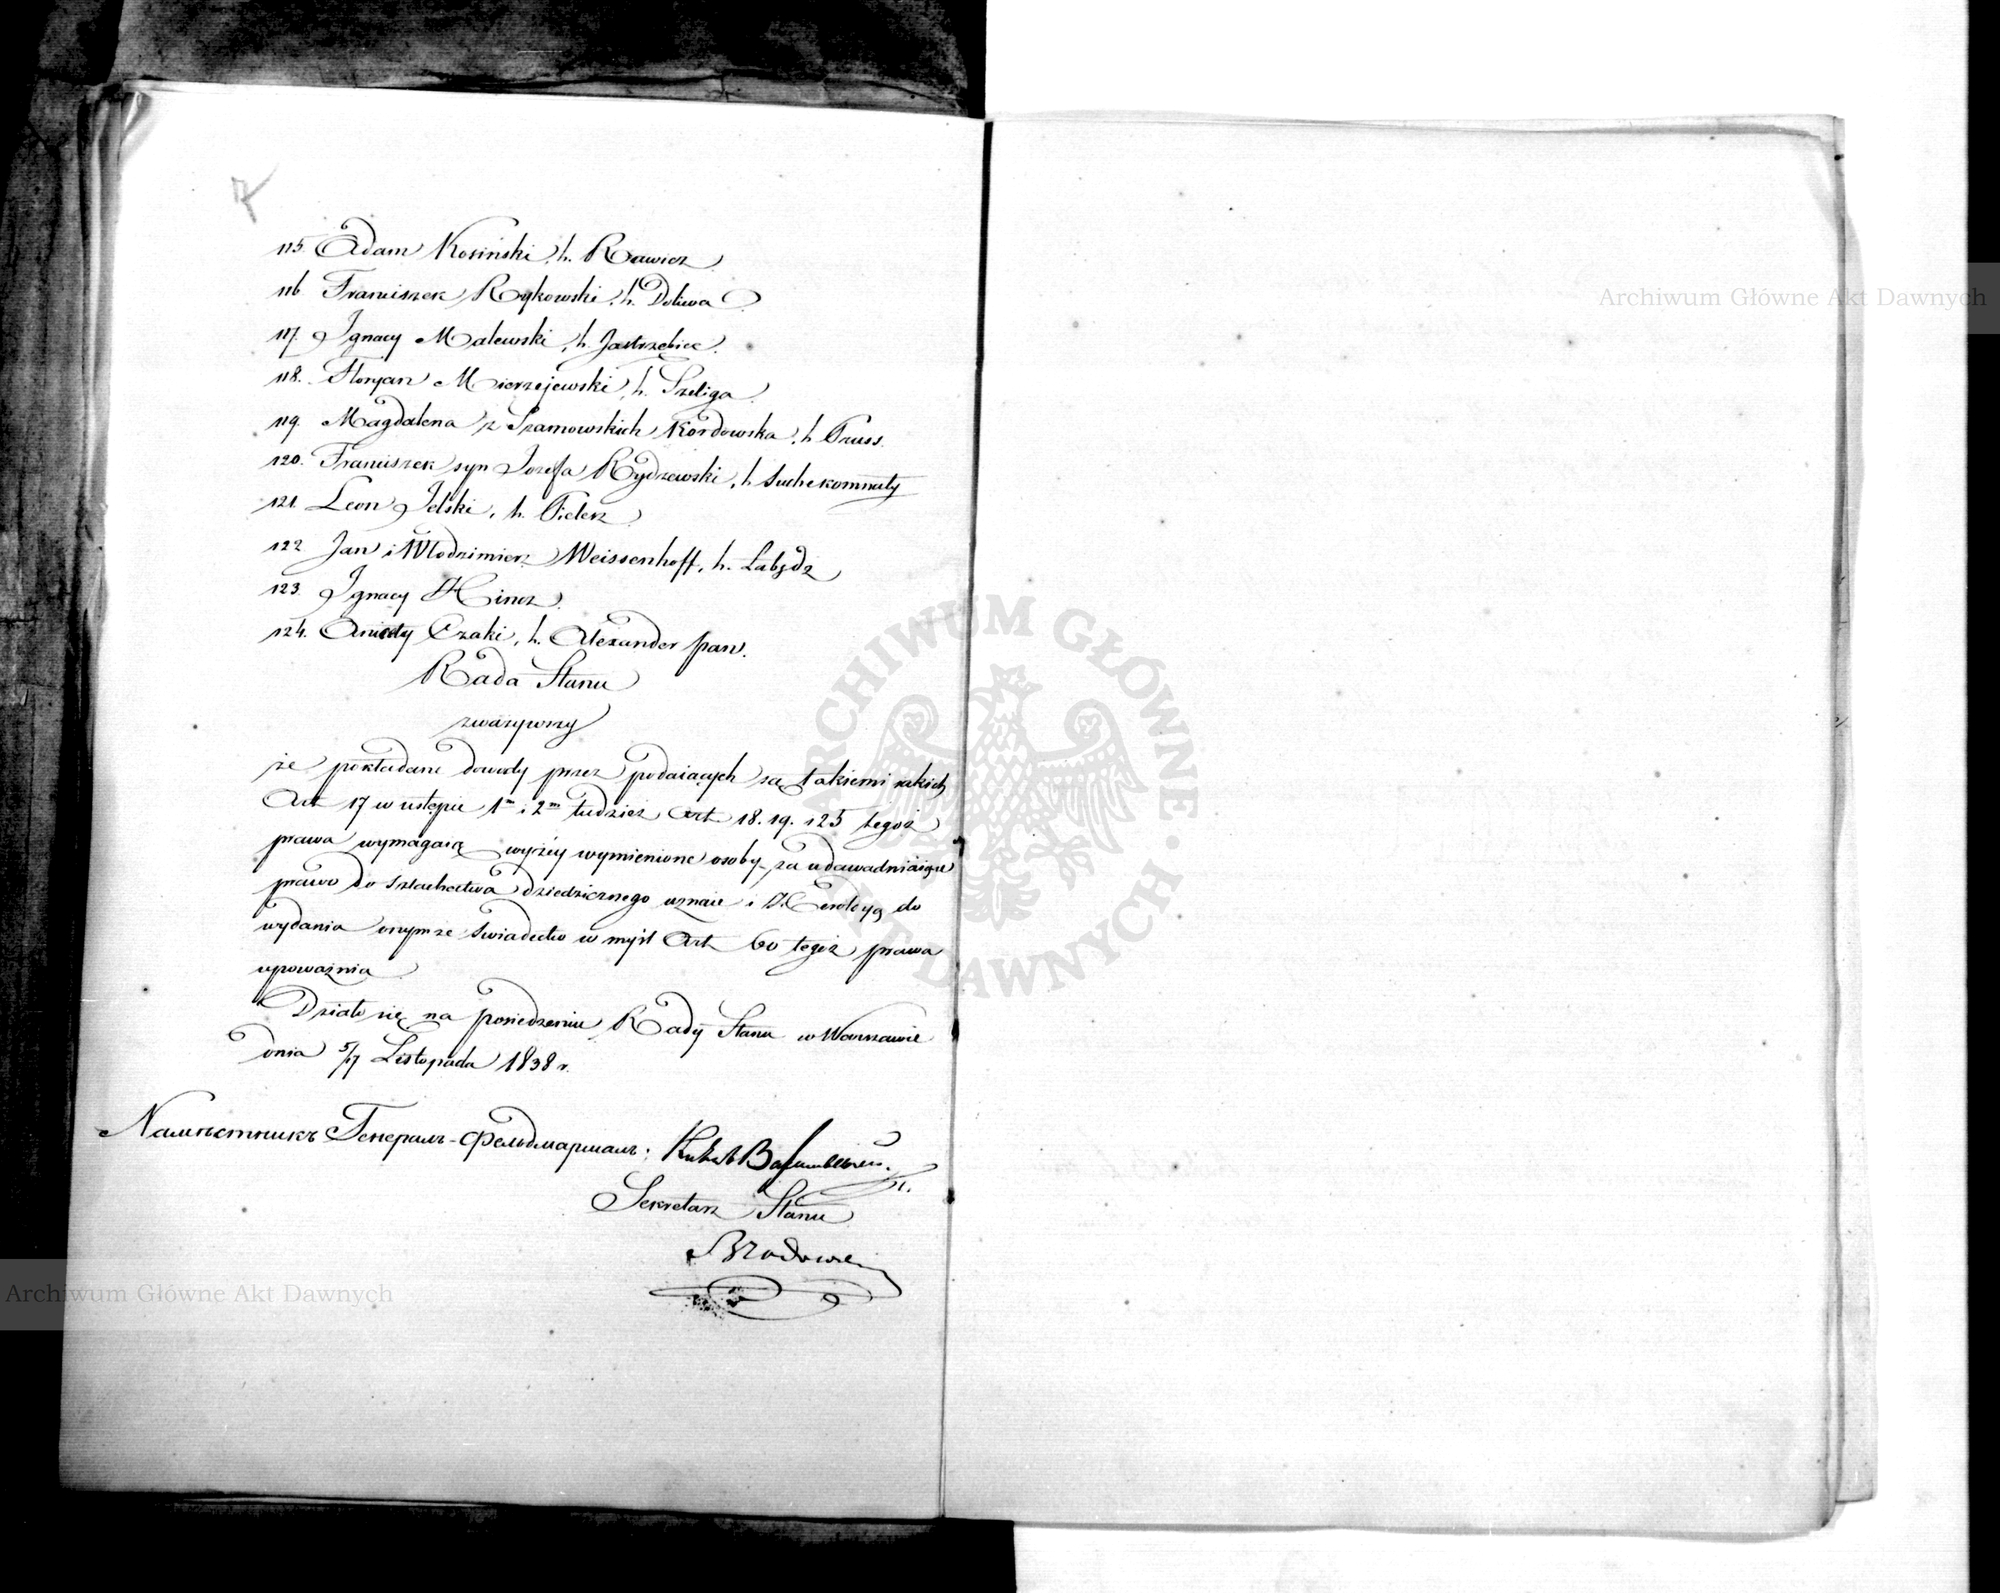 115. Adam Kosiński, h. Rawicz.
116 Franciszek Rykowski, h. Doliwa
117. Ignacy Malewski, h. Jastrzębiec.
118. Floryan Mierzejewski, h. Szeliga.
119. Magdalena z Szamowskich Kordowska, h Pruss.
120. Franciszek syn Jozefa Rydzewski, h Suchekomnaty
121. Leon Jelski, h. Pielesz
122 Jan i Włodzimierz Weissenhoff, h. Łabędz
123. Ignacy Hincz.
124. Anicety Czaki, h. Alexander pan.
Rada Stanu
zważywszy
że pokładane dowody przez podaiących są takiemi iakich
Art 17 w ustępie 1m i 2m tudzież Art 18. 19. i 25 tegoż
prawa wymagaią wyżéy wymienione osoby, za udawadniaiące
prawo do szlachectwa dziedzicznego uznaie i Heroldyą do
wydania onymże świadectw w myśl Art 60 tegoż prawa
upoważnia.
Działo się na posiedzeniu Rady Stanu w Warszawie
dnia 5/17 Listopada 1838 r.
Намѣстникъ Генералъ-Фельдмаршалъ:
Sekretarz Stanu
Archiwum Główne Akt Dawnych
ARCHIWUM GŁÓWNE AKT DAWNYCH
Archiwum Główne Akt Dawnych